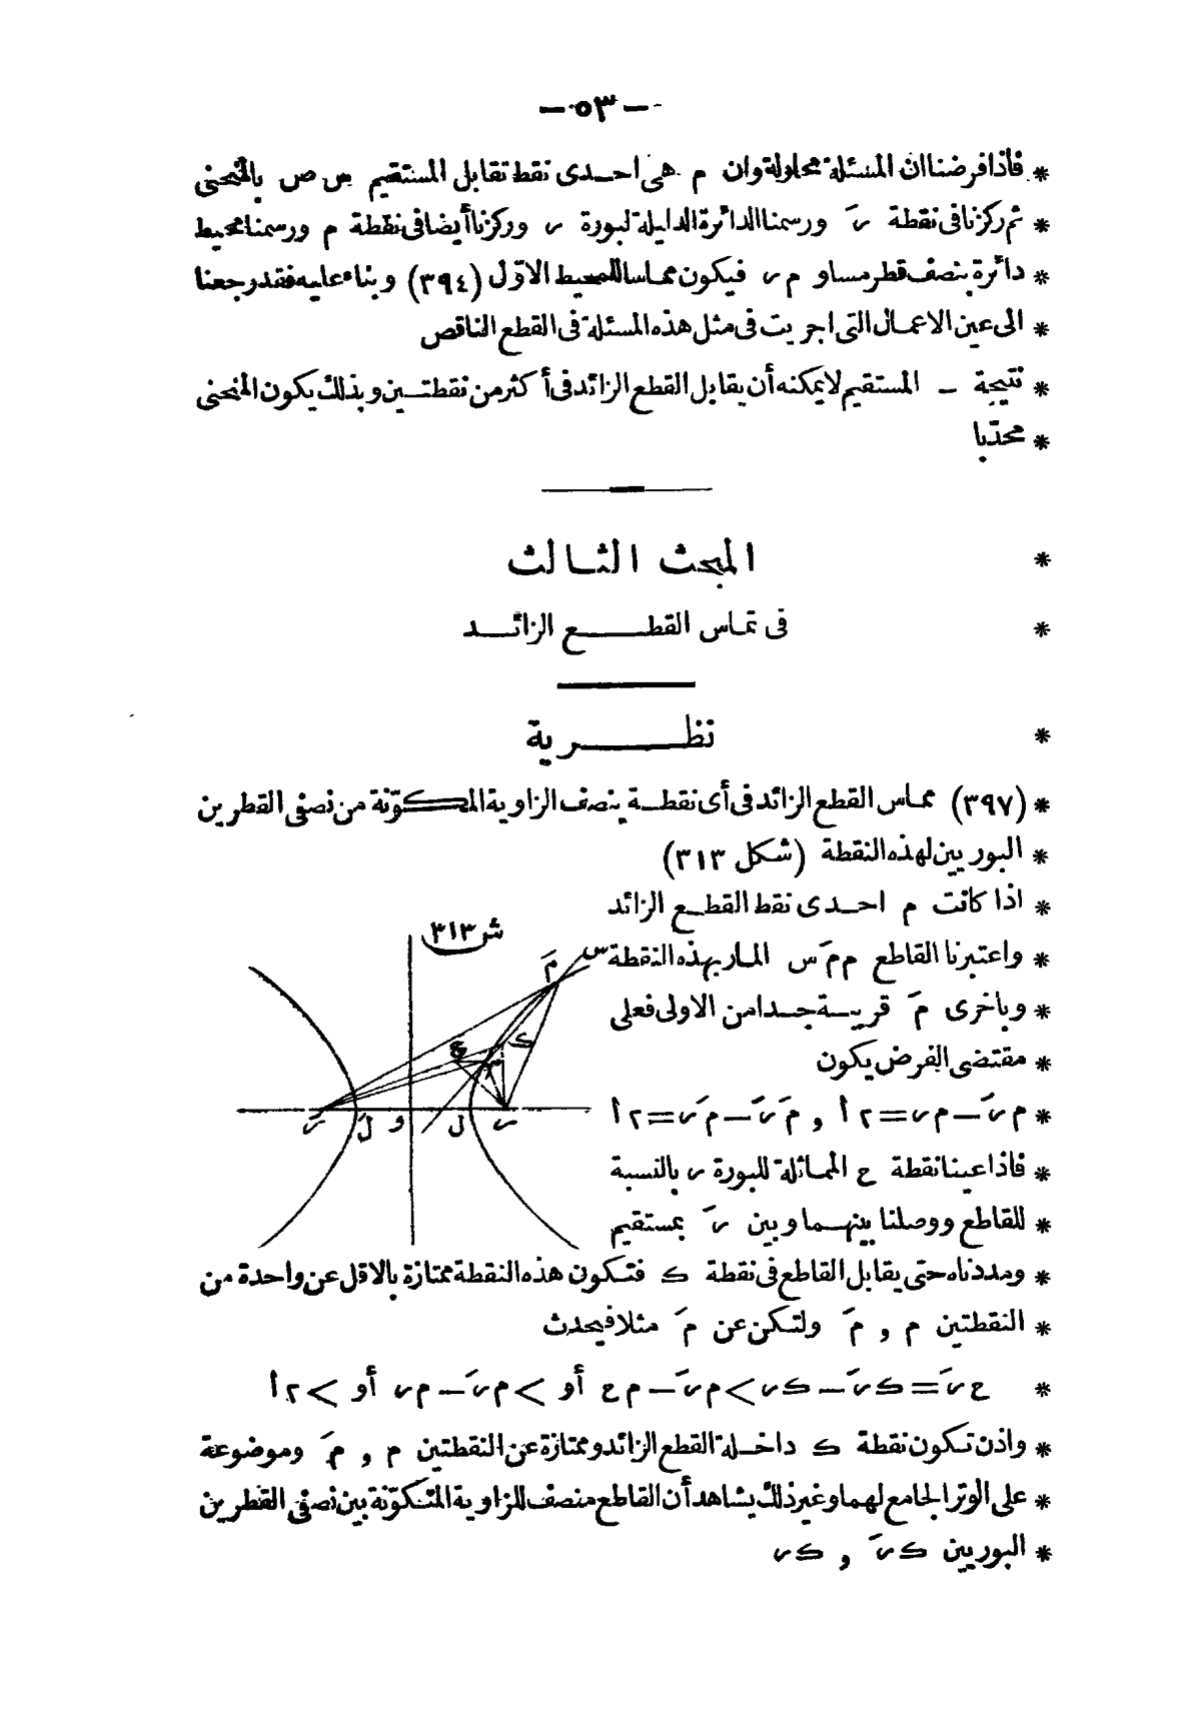 — ٥٣ —
* فاذا فرضنا ان المسئلة محلولة وان م هى احدى نقط تقابل المستقيم س ص بالمنحنى
* ثم ركزنا فى نقطة رَ ورسمنا الدائرة الدليلة لبورة ر وركزنا أيضا فى نقطة م ورسمنا محيط
* دائرة بنصف قطر مساو م ر فيكون مماسا للمحيط الاوّل (٣٩٤) وبناء عليه فقد رجعنا
* الى عين الاعمال التى اجريت فى مثل هذه المسئلة فى القطع الناقص
* نتيجة – المستقيم لا يمكنه أن يقابل القطع الزائد فى أكثر من نقطتين وبذلك يكون المنحنى
* محدّبا
* المبحث الثالث
* فى تماس القطع الزائد
* نظرية
* (٣٩٧) مماس القطع الزائد فى أى نقطة ينصف الزاوية المكوّنة من نصفى القطرين
* البوريين لهذه النقطة (شكل ٣١٣)
* اذا كانت م احدى نقط القطع الزائد
* واعتبرنا القاطع م مَ س المار بهذه النقطة
* وباخرى مَ قريبة جدا من الاولى فعلى
* مقتضى الفرض يكون
* م رَ – م ر = ٢ أ , مَ رَ – مَ ر = ٢ أ
* فاذا عينا نقطة ع المماثلة للبورة ر بالنسبة
* للقاطع ووصلنا بينهما وبين رَ بمستقيم
* ومددناه حتى يقابل القاطع فى نقطة ك فتكون هذه النقطة ممتازة بالاقل عن واحدة من
* النقطتين م , مَ ولتكن عن مَ مثلا فيحدث
* ع رَ = ك رَ – ك ر > م رَ – م ع أو > م رَ – م ر أو > ٢ أ
* واذن تكون نقطة ك داخلة القطع الزائد وممتازة عن النقطتين م , مَ وموضوعة
* على الوتر الجامع لهما وغير ذلك يشاهد أن القاطع منصف للزاوية المتكوّنة بين نصفى القطرين
* البوريين ك رَ , ك ر
ش ٣١٣
س
مَ
ك
ع
م
رَ
لَ
و
ل
ر